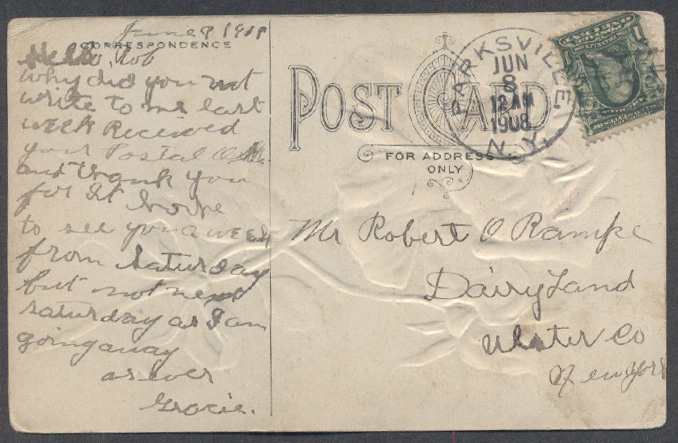 June 9 1908
CORRESPONDENCE
Hello Rob
why did you not
write to me last
week Received
your Postal
and thank you
for it
to see you a week
from Saturday
but not next
saturday as I am
going away
as ever
Gracie.
POST CARD
FOR ADDRESS
ONLY
PARKSVILLE
JUN
8
12 AM
1908
N.Y.
Mr Robert O Rampe
Dairyland
Ulster Co
New York